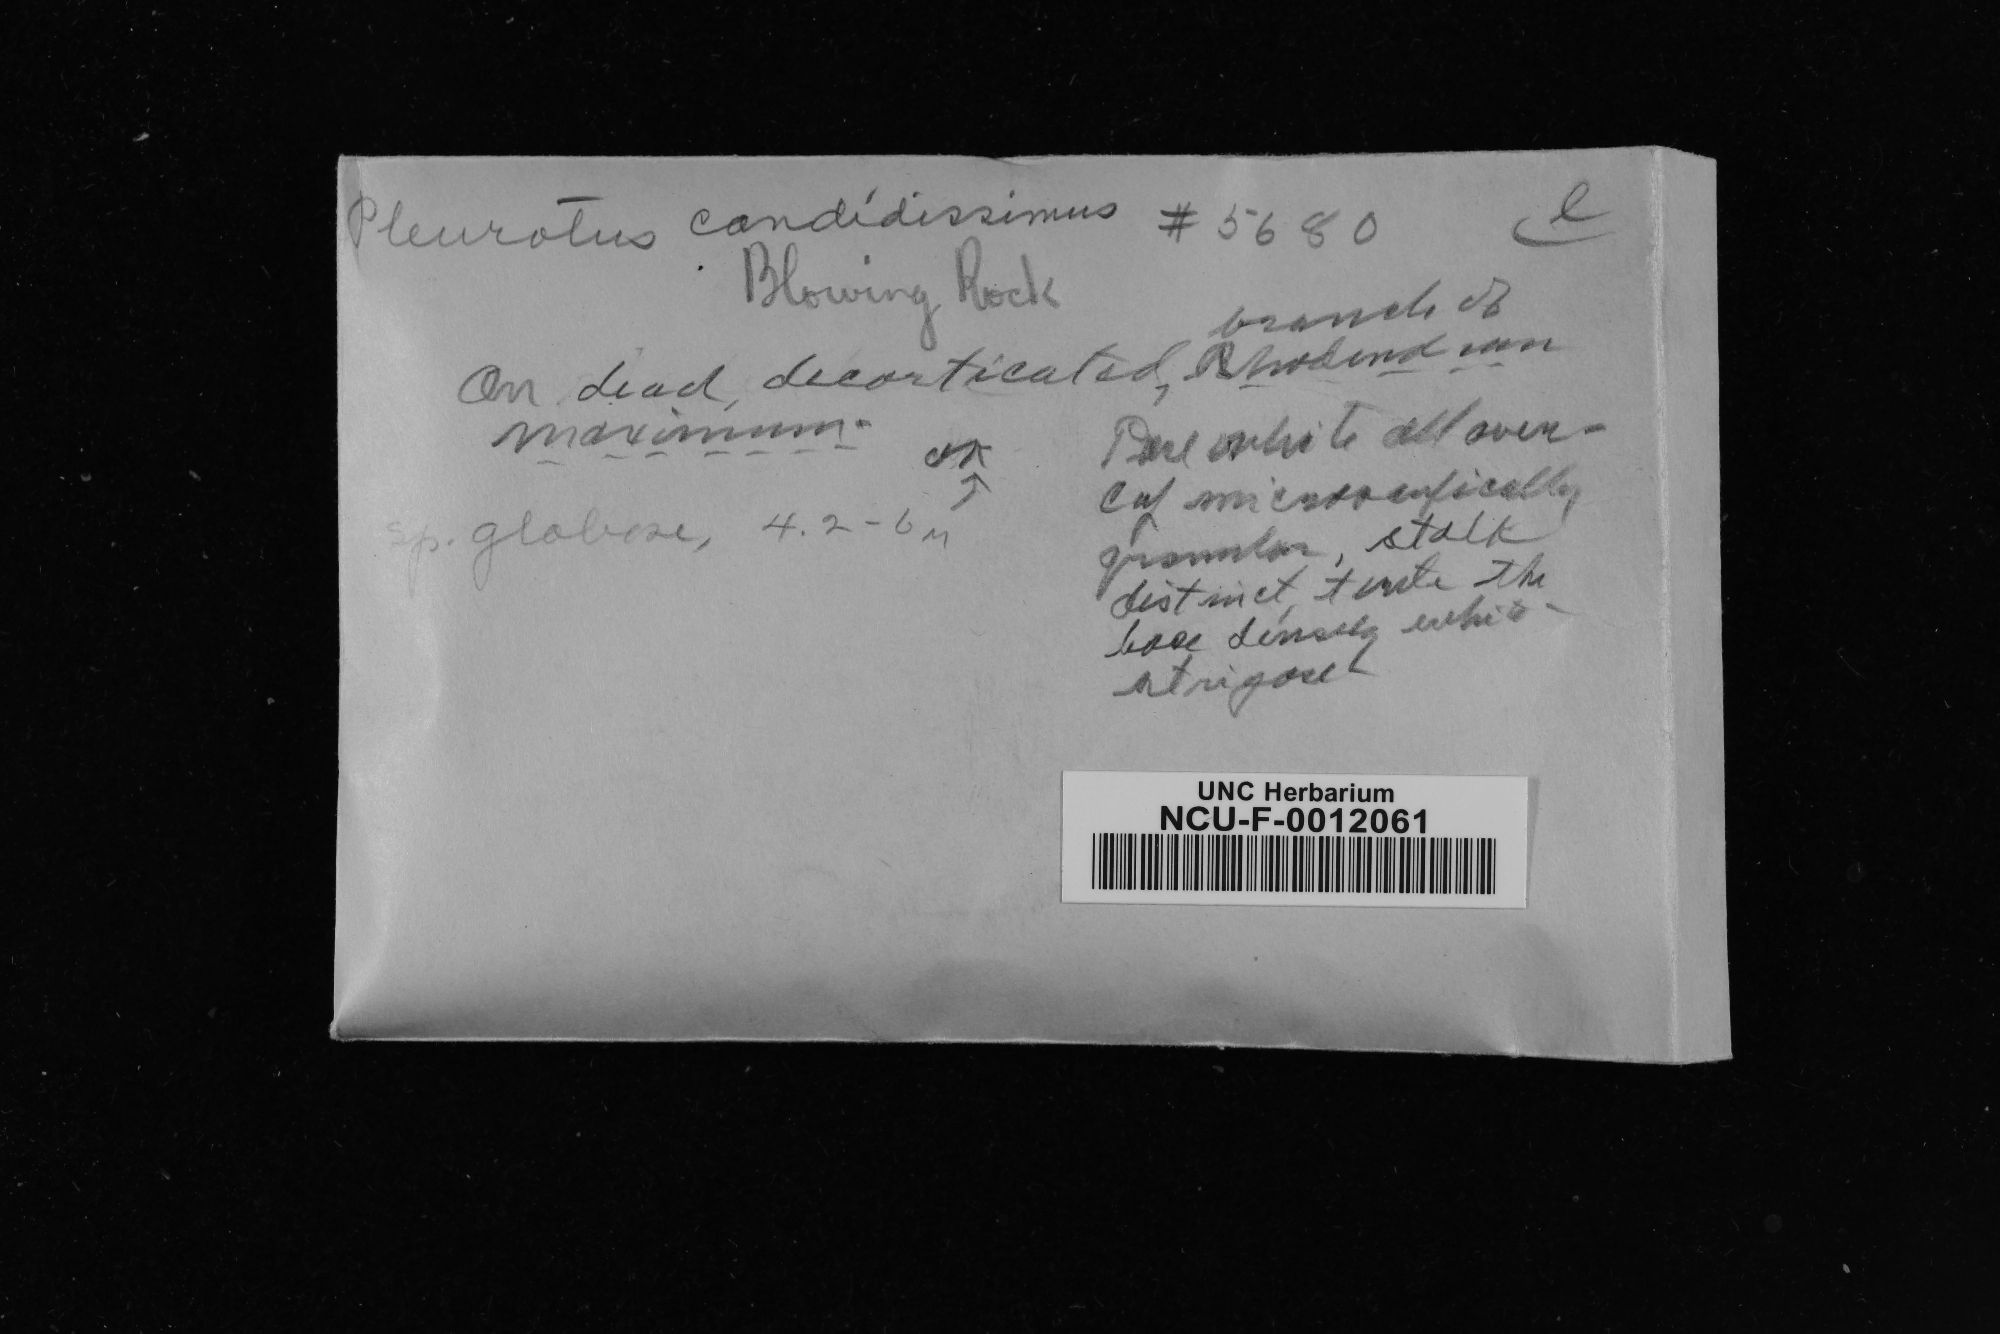 Pleurotus candidissimus #5680 e
Blowing Rock
branch of
On dead, decorticated, Rhodendron
maximum.
ok
sp. globose, 4.2-6µ
Pure white all over -
cap microscopically
granular, stalk
distinct, terete the
base densely white -
strigose
UNC Herbarium
NCU-F-0012061